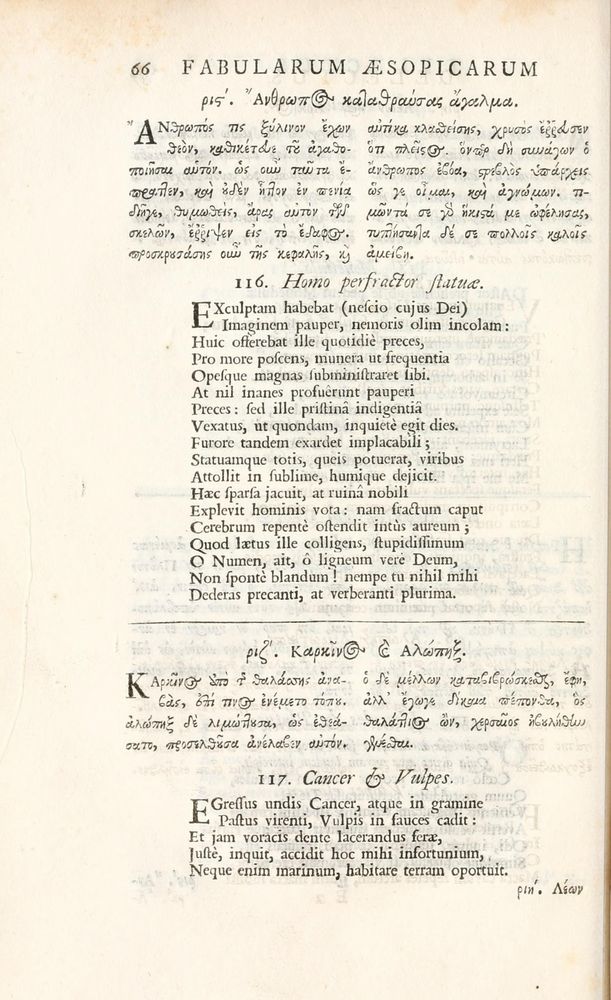 66 FABULARUM ÆSOPICARUM
ριϛʹ. Ἄνθρωπος καταθραύσας ἄγαλμα.
ἌΝθρωπός τις ξύλινον ἔχων
θεὸν, καθικέτευε τοῦ ἀγαθο-
ποιῆσαι αὐτόν. ὡς οὖν ταῦτα ἔ-
πραττεν, καὶ οὐδὲν ἧττον ἐν πενίᾳ
διῆγε, θυμωθεὶς, ἄρας αὐτὸν τῶν
σκελῶν, ἔῤῥιψεν εἰς τὸ ἔδαφος.
προσκρουσάσης οὖν τῆς κεφαλῆς, καὶ
αὐτίκα κλασθείσης, χρυσὸς ἔῤῥευσεν
ὅτι πλεῖστος. ὅνπερ δὴ συνάγων ὁ
ἄνθρωπος ἐβόα, στρεβλὸς ὑπάρχεις
ὥς γε οἶμαι, καὶ ἀγνώμων. τι-
μῶντά σε γὰρ ἥκιστά με ὠφέλησας,
τυπτήσαντα δέ σε πολλοῖς καλοῖς
ἀμείβῃ.
116. Homo perfractor ſtatuæ.
EXculptam habebat (neſcio cujus Dei)
Imaginem pauper, nemoris olim incolam:
Huic offerebat ille quotidiè preces,
Pro more poſcens, munera ut frequentia
Opeſque magnas ſubminiſtraret ſibi.
At nil inanes profuêrunt pauperi
Preces: ſed ille priſtinâ indigentiâ
Vexatus, ut quondam, inquietè egit dies.
Furore tandem exardet implacabili;
Statuamque totis, queis potuerat, viribus
Attollit in ſublime, humique dejicit.
Hæc ſparſa jacuit, at ruinâ nobili
Explevit hominis vota: nam fractum caput
Cerebrum repentè oſtendit intùs aureum;
Quod lætus ille colligens, ſtupidiſſimum
O Numen, ait, ô ligneum vere Deum,
Non ſpontè blandum! nempe tu nihil mihi
Dederas precanti, at verberanti plurima.
ριζʹ. Καρκῖνος καὶ Ἀλώπηξ.
ΚΑρκῖνος ἀπὸ τῆς θαλάσσης ἀνα-
βὰς, ἐπί τινος ἐνέμετο τόπου.
ἀλώπηξ δὲ λιμώττουσα, ὡς ἐθεά-
σατο, προσελθοῦσα ἀνέλαβεν αὐτόν.
ὁ δὲ μέλλων καταβιβρώσκεσθαι, ἔφη,
ἀλλ' ἔγωγε δίκαια πέπονθα, ὃς
θαλάττιος ὢν, χερσαῖος ἐβουλήθην
γενέσθαι.
117. Cancer & Vulpes.
EGreſſus undis Cancer, atque in gramine
Paſtus virenti, Vulpis in fauces cadit:
Et jam voracis dente lacerandus feræ,
Juſtè, inquit, accidit hoc mihi infortunium,
Neque enim marinum, habitare terram oportuit.
ριηʹ. Λέων